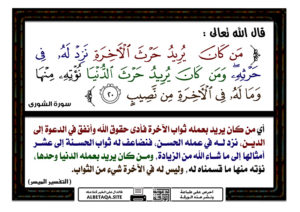 قال الله تعالى :
﴿ مَن كَانَ يُرِيدُ حَرْثَ ٱلْأَخِرَةِ نَزِدْ لَهُۥ فِى
حَرْثِهِۦ وَمَن كَانَ يُرِيدُ حَرْثَ ٱلدُّنْيَا نُؤْتِهِۦ مِنْهَا
وَمَا لَهُۥ فِى ٱلْأَخِرَةِ مِن نَّصِيبٍ ٢٠ ﴾
سورة الشورى
أي من كان يريد بعمله ثواب الآخرة فأدى حقوق الله وأنفق في الدعوة إلى
الدين، نزد لـه في عمله الحسن، فنضاعف له ثواب الحسنة إلى عشر
أمثالها إلى ما شاء الله من الزيادة، ومـن كان يريد بعمله الدنيا وحدها،
نؤته منها ما قسمناه له، وليس له في الآخرة شيء من الثواب.
(التفسير الميسر)
ALBETAQA.SITE